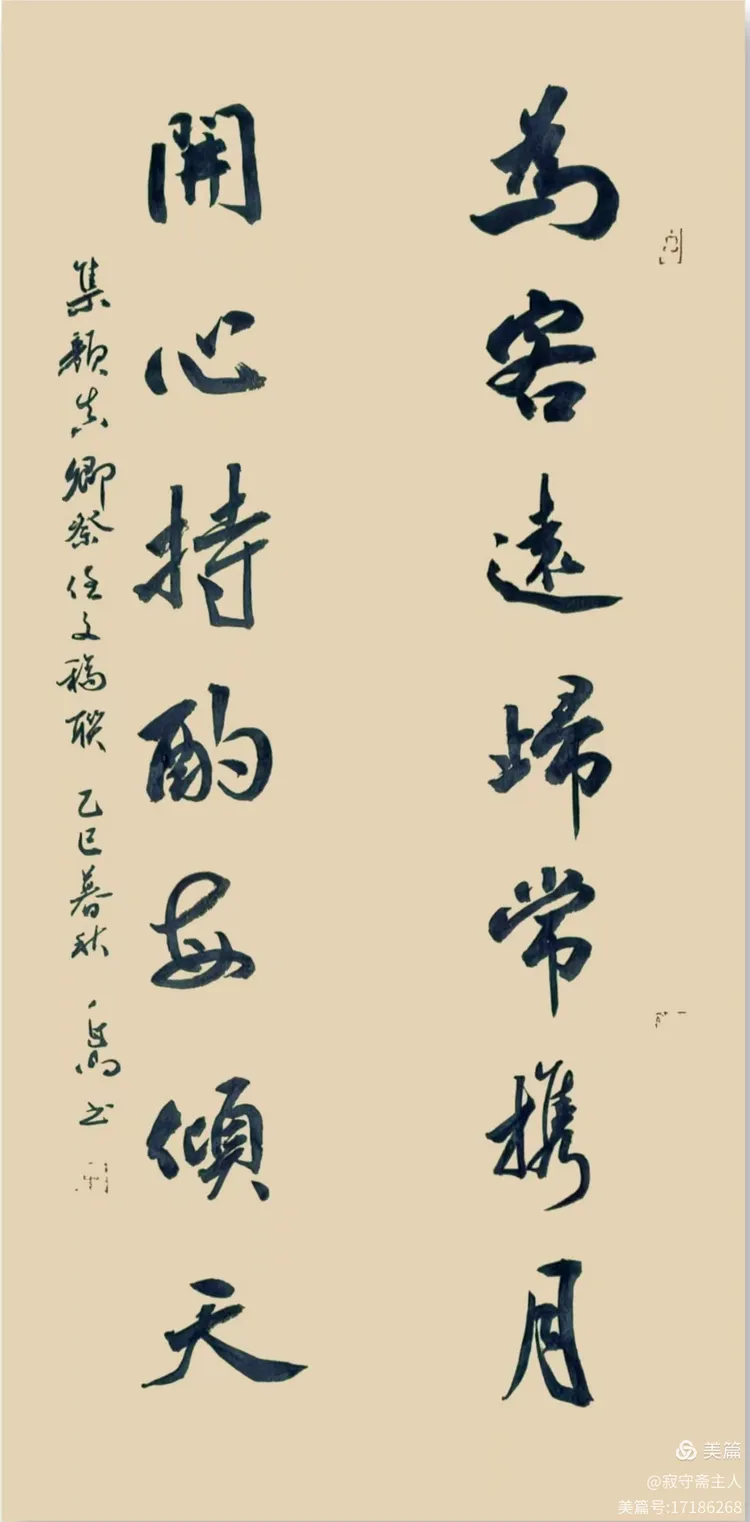 為客遠歸常携月
開心持酌每傾天
集顏真卿祭侄文稿聯 乙巳暮秋
书
美篇
@寂守斋主人
美篇号:17186268